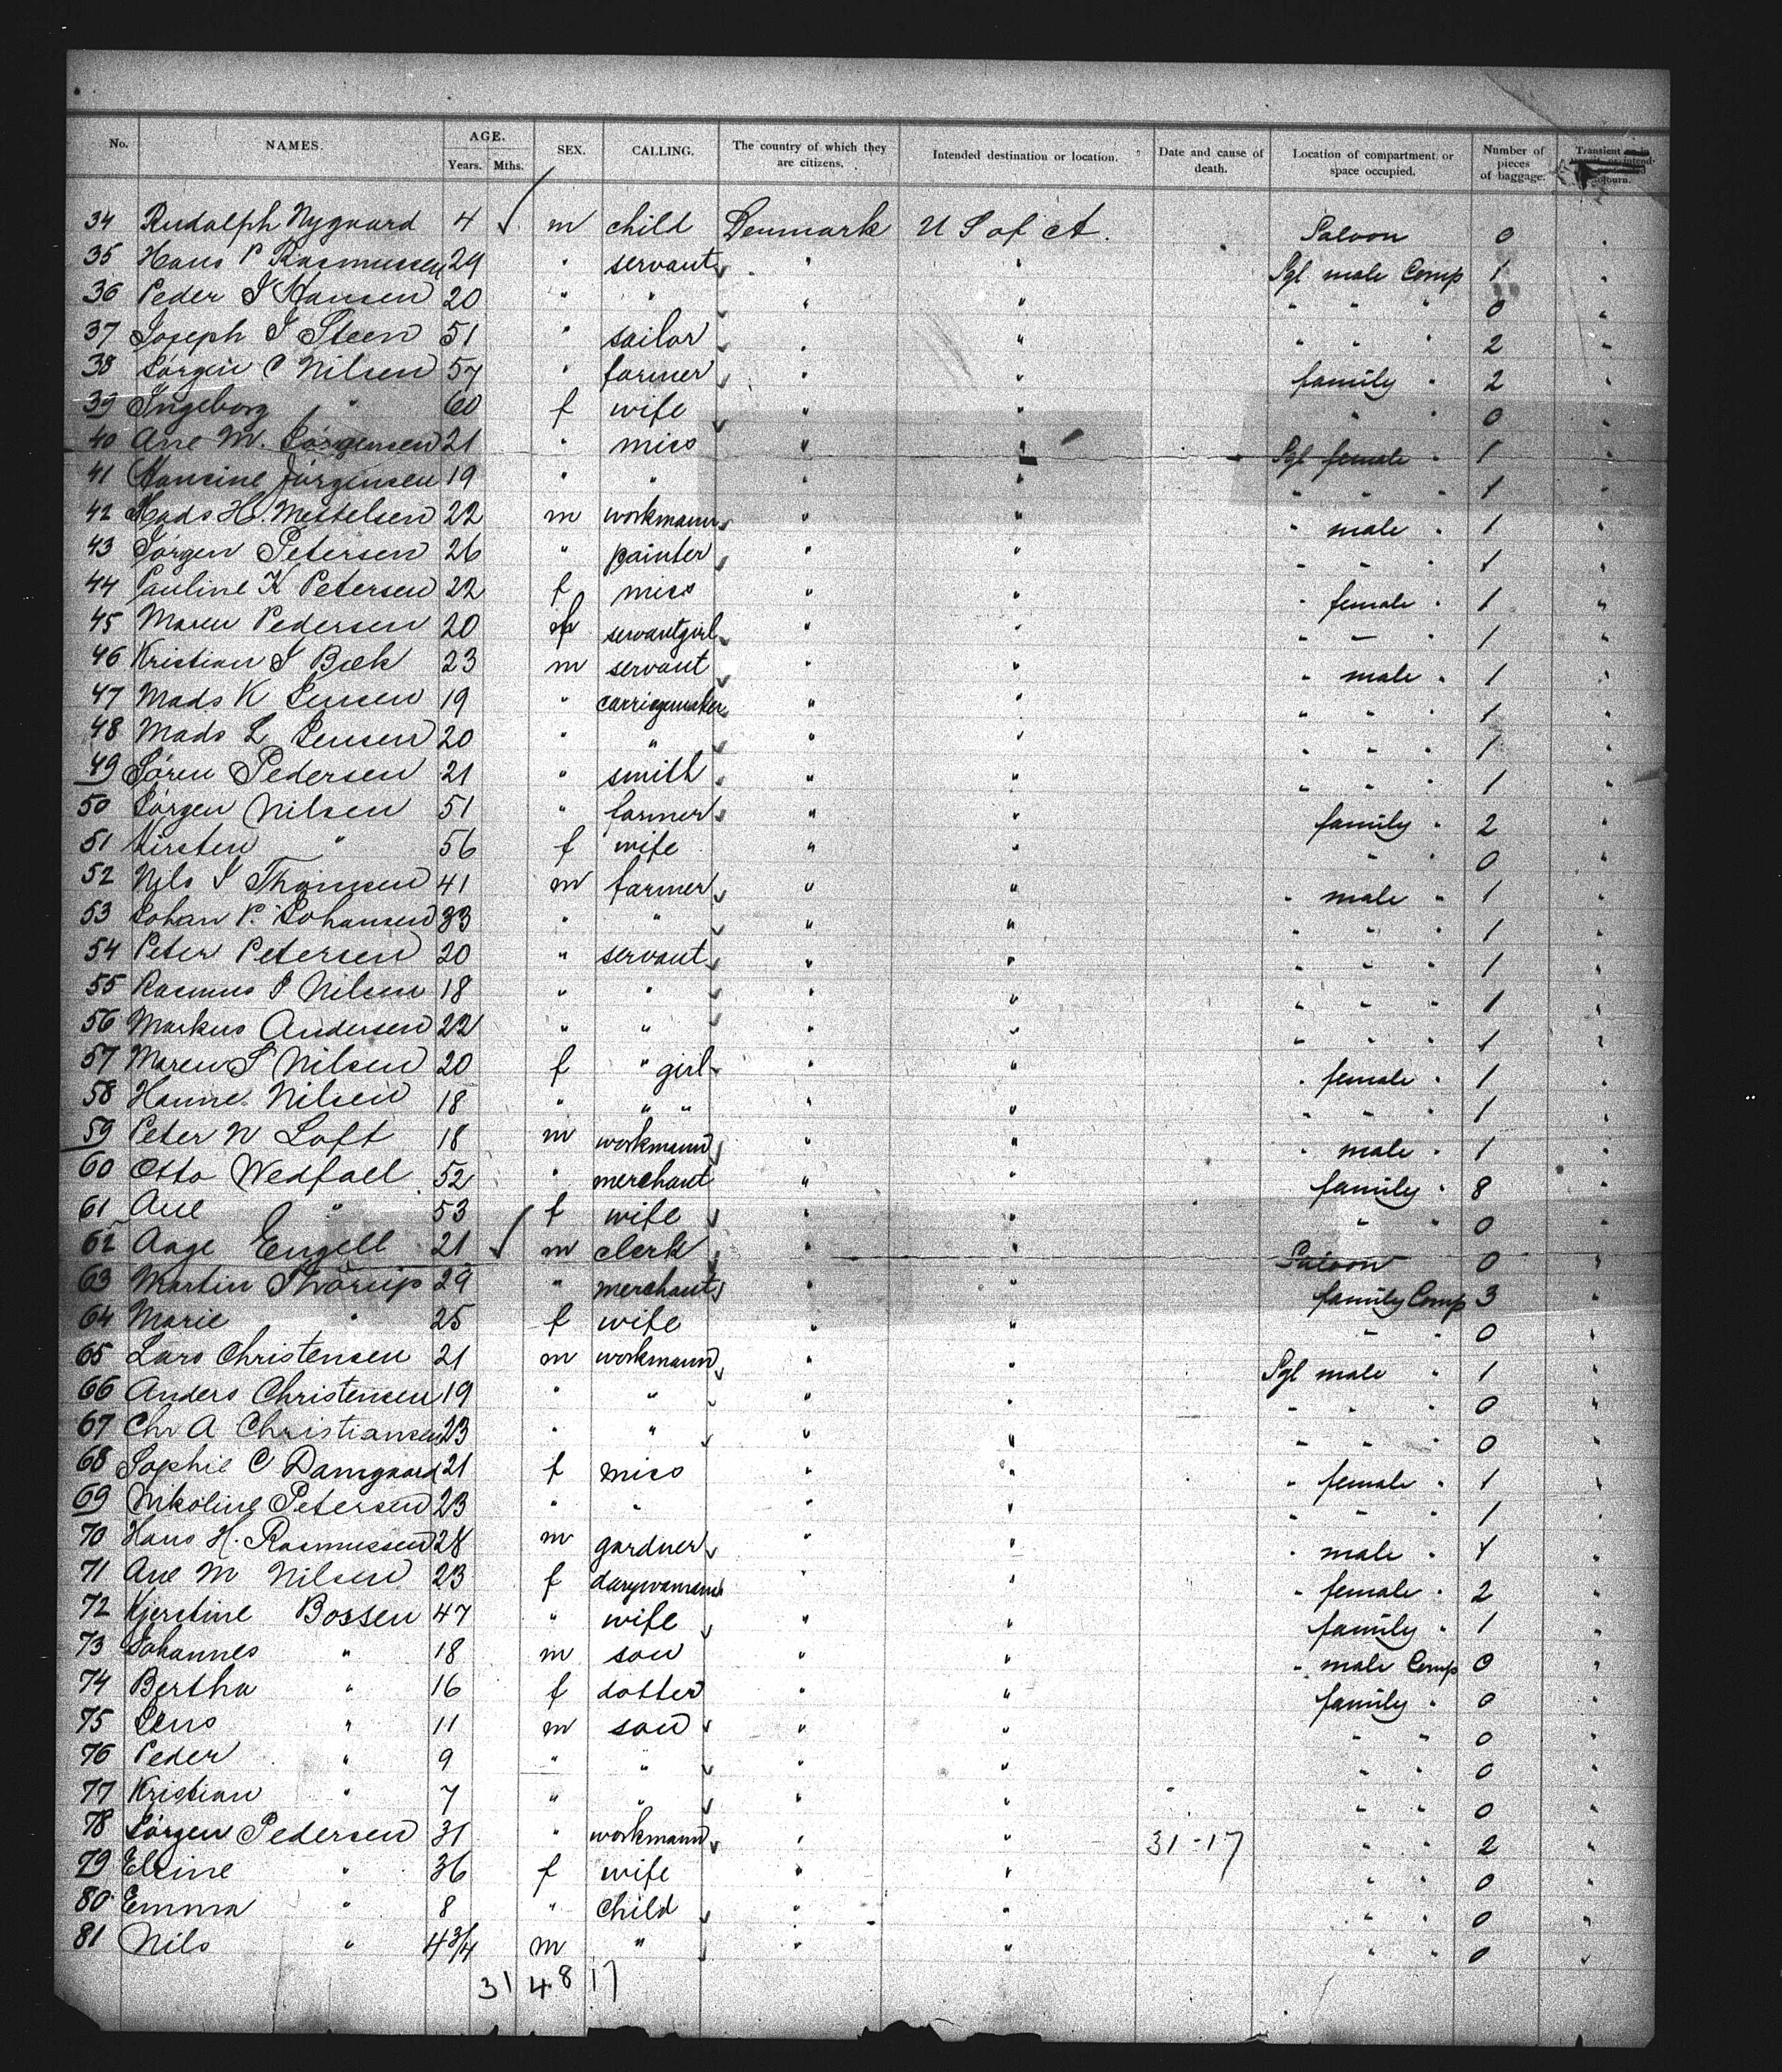 No. NAMES. AGE. Years. Mths. SEX. CALLING. The country of which they are citizens. Intended destination or location. Date and cause of death. Location of compartment or space occupied. Number of pieces of baggage. Transient
34 Rudolph Nygaard 4 m child Denmark U S of A. Saloon 0
35 Hans P Rasmussen 29 " servant " " Sgl male Comp 1 "
36 Peder J Hansen 20 " " " " " " " 0 "
37 Joseph J Steen 51 " sailor " " " " " 2 "
38 Jörgen C Nilsen 57 " farmer " " family " 2 "
39 Ingeborg " 60 f wife " " " " 0 "
40 Ane M. Jörgensen 21 " miss " " Sgl female " 1 "
41 Hansine Jürgensen 19 " " " " " " " 1 "
42 Mads H. 22 m workmann " " " male " 1 "
43 Jörgen Petersen 26 " painter " " " " " 1 "
44 Pauline K Petersen 22 f miss " " " female " 1 "
45 Maren Pedersen 20 f servantgirl " " " " " 1 "
46 Kristian J Bæk 23 m servant " " " male " 1 "
47 Mads K Jensen 19 " carriagemaker " " " " " 1 "
48 Mads L Jensen 20 " " " " " " " 1 "
49 Sören Pedersen 21 " smith " " " " " 1 "
50 Jörgen Nilsen 51 " farmer " " family " 2 "
51 Kirsten " 56 f wife " " " " 0 "
52 Nils J Thomsen 41 m farmer " " " male " 1 "
53 Johan P. Johansen 33 " " " " " " " 1 "
54 Peter Petersen 20 " servant " " " " " 1 "
55 Rasmus P Nilsen 18 " " " " " " " 1 "
56 Markus Andersen 22 " " " " " " " 1 "
57 Maren S Nilsen 20 f " girl " " " female " 1 "
58 Hanne Nilsen 18 " " " " " " " " 1 "
59 Peter N Loft 18 m workmann " " " male " 1 "
60 Otto Wedfall 52 " merchant " " family " 8 "
61 Ane " 53 f wife " " " " 0 "
62 Aage Engell 21 m clerk " " Saloon 0 "
63 Martin Thorup 29 " merchant " " family Comp 3 "
64 Marie " 25 f wife " " " " 0 "
65 Lars Christensen 21 m workmann " " Sgl male " 1 "
66 Anders Christensen 19 " " " " " " " 0 "
67 Chr A Christiansen 23 " " " " " " " 0 "
68 Sophie C Damgaard 21 f miss " " " female " 1 "
69 Nikoline Petersen 23 " " " " " " " 1 "
70 Hans H. Rasmussen 28 m gardner " " " male " 1 "
71 Ane M Nilsen 23 f " " " female " 2 "
72 Kjerstine Bossen 47 " wife " " family " 1 "
73 Johannes " 18 m son " " " male Comp 0 "
74 Bertha " 16 f dotter " " family " 0 "
75 Jens " 11 m son " " " " 0 "
76 Peder " 9 " " " " " " 0 "
77 Kristian " 7 " " " " " " 0 "
78 Jörgen Pedersen 31 " workmann " " 31-17 " " 2 "
79 Elsine " 36 f wife " " " " 0 "
80 Emma " 8 " child " " " " 0 "
81 Nils " 4 3/4 m " " " " " 0 "
31 48 17